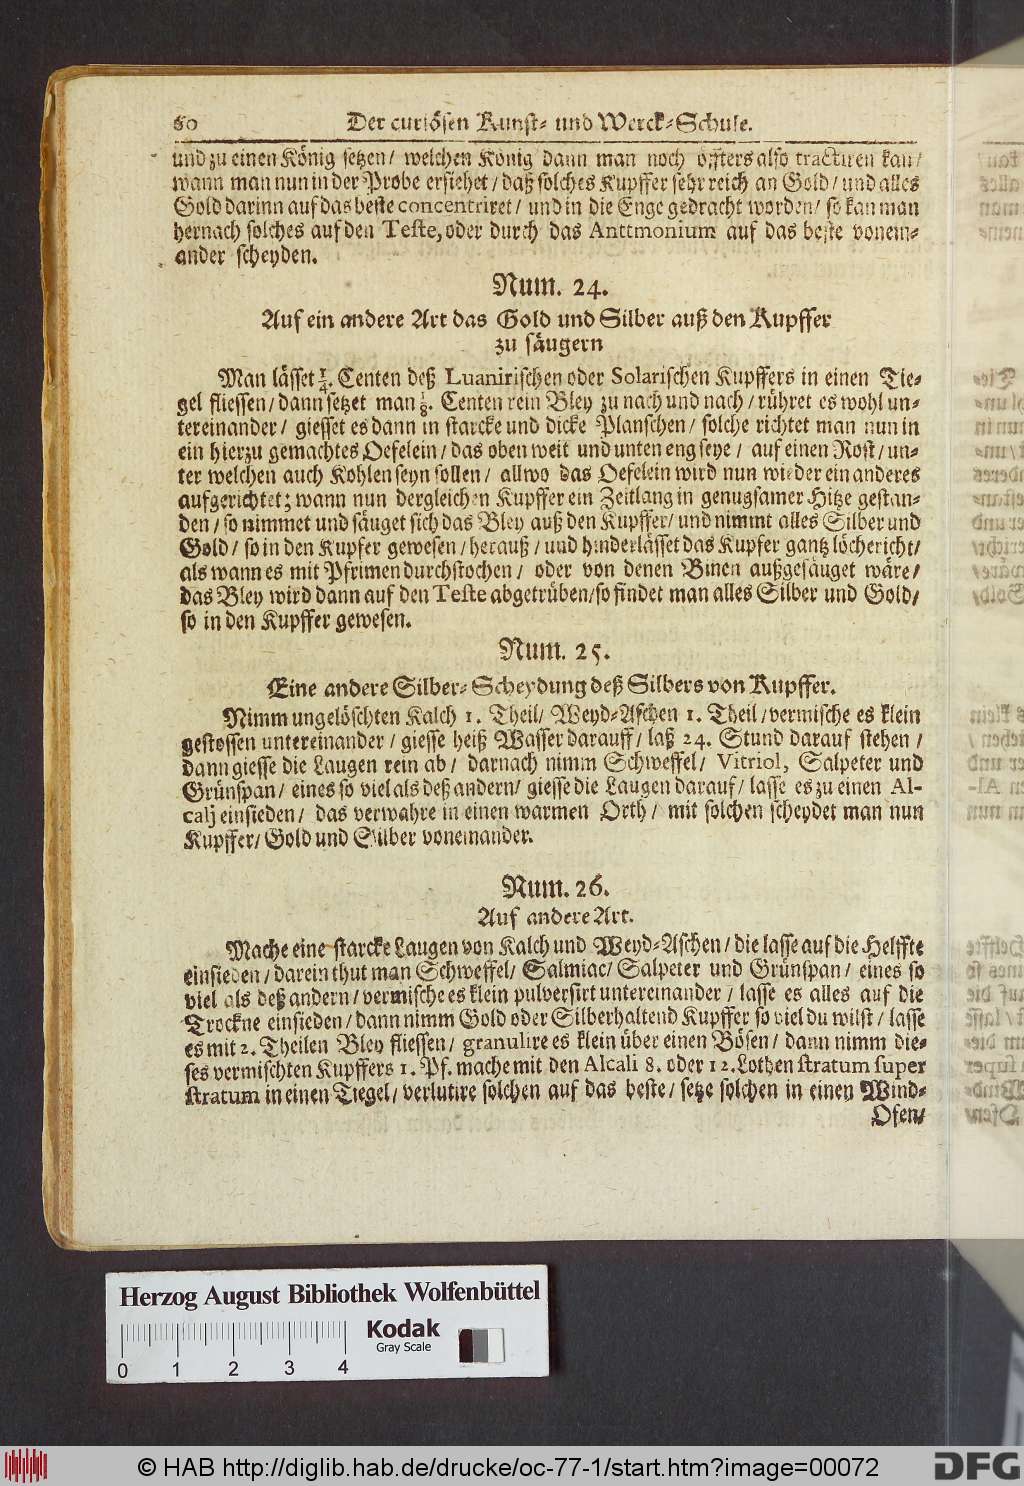 60 Der curiösen Kunst- und Werck-Schule.
und zu einen König setzen/ welchen König dann man noch öffters also tractiren kan/
wann man nun in der Probe ersiehet/ daß solches Kupffer sehr reich an Gold/ und alles
Gold darinn auf das beste concentriret/ und in die Enge gedracht worden/ so kan man
hernach solches auf den Teste, oder durch das Anttmonium auf das beste vonein-
ander scheyden.
Num. 24.
Auf ein andere Art das Gold und Silber auß den Kupffer
zu säugern
Man lässet ¼. Centen deß Luanirischen oder Solarischen Kupffers in einen Tie-
gel fliessen/ dann setzet man ⅛. Centen rein Bley zu nach und nach/ rühret es wohl un-
tereinander/ giesset es dann in starcke und dicke Planschen/ solche richtet man nun in
ein hierzu gemachtes Oefelein/ das oben weit und unten eng seye/ auf einen Rost/ un-
ter welchen auch Kohlen seyn sollen/ allwo das Oefelein wird nun wieder ein anderes
aufgerichtet; wann nun dergleichen Kupffer ein Zeitlang in genugsamer Hitze gestan-
den/ so nimmet und säuget sich das Bley auß den Kupffer/ und nimmt alles Silber und
Gold/ so in den Kupfer gewesen/ herauß/ und hinderlässet das Kupfer gantz löchericht/
als wann es mit Pfrimen durchstochen/ oder von denen Binen außgesäuget wäre/
das Bley wird dann auf den Teste abgetrüben/ so findet man alles Silber und Gold/
so in den Kupffer gewesen.
Num. 25.
Eine andere Silber-Scheydung deß Silbers von Kupffer.
Nimm ungelöschten Kalch 1. Theil/ Weyd-Aschen 1. Theil/ vermische es klein
gestossen untereinander/ giesse heiß Wasser darauff/ laß 24. Stund darauf stehen/
dann giesse die Laugen rein ab/ darnach nimm Schweffel/ Vitriol, Salpeter und
Grünspan/ eines so viel als deß andern/ giesse die Laugen darauf/ lasse es zu einen Al-
calj einsieden/ das verwahre in einen warmen Orth/ mit solchen scheydet man nun
Kupffer/ Gold und Silber voneinander.
Num. 26.
Auf andere Art.
Mache eine starcke Laugen von Kalch und Weyd-Aschen/ die lasse auf die Helffte
einsieden/ darein thut man Schweffel/ Salmiac/ Salpeter und Grünspan/ eines so
viel als deß andern/ vermische es klein pulversirt untereinander/ lasse es alles auf die
Trockne einsieden/ dann nimm Gold oder Silberhaltend Kupffer so viel du wilst/ lasse
es mit 2. Theilen Bley fliessen/ granulire es klein über einen Bösen/ dann nimm die-
ses vermischten Kupffers 1. Pf. mache mit den Alcali 8. oder 12. Lothen stratum super
stratum in einen Tiegel/ verlutire solchen auf das beste/ setze solchen in einen Wind-
Ofen/
Herzog August Bibliothek Wolfenbüttel
Kodak
Gray Scale
0 1 2 3 4
© HAB http://diglib.hab.de/drucke/oc-77-1/start.htm?image=00072
DFG